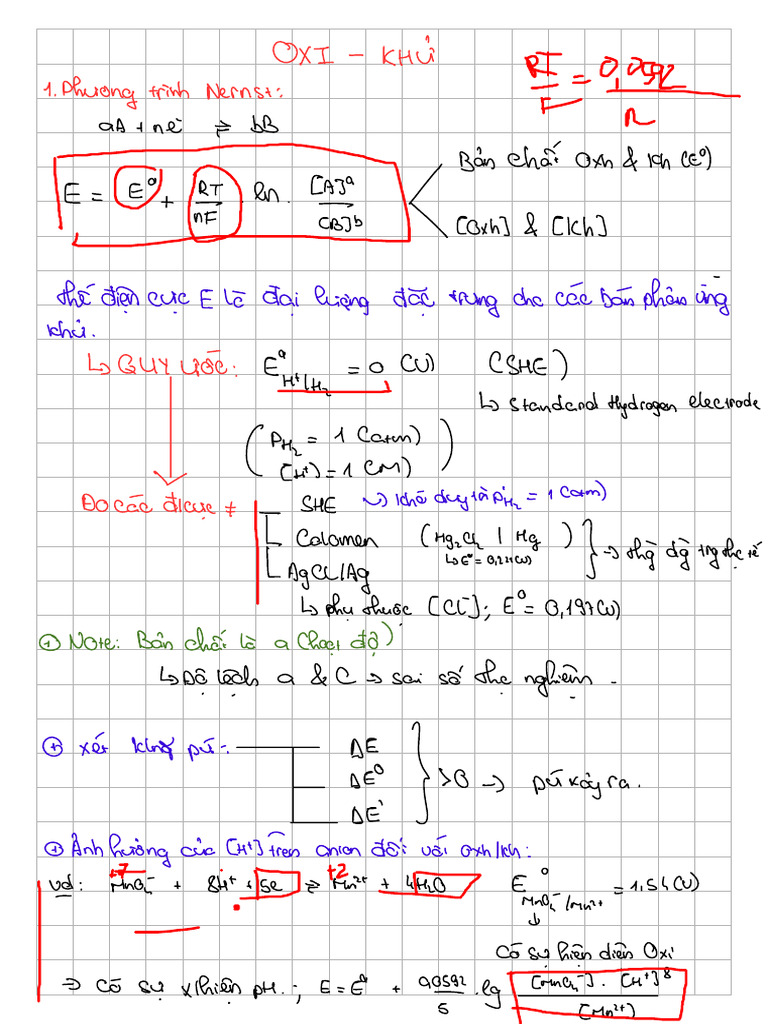 OXI – KHỬ
RT/F = 0,0592/n
1. Phương trình Nernst:
aA + ne ⇌ bB
E = E⁰ + RT/nF . ln . [A]ᵃ/[B]ᵇ
Bản chất Oxh & kh (E⁰)
[Oxh] & [Kh]
Thế điện cực E là đại lượng đặc trưng cho các bán phản ứng
khử.
↳ QUY ƯỚC: E⁰ H⁺/H₂ = 0 (V) (SHE)
↳ Standard Hydrogen electrode
(P_H₂ = 1 (atm)
[H⁺] = 1 (M))
Đo các đ/cực ≠
SHE ↝ khó duy trì P_H₂ = 1 (atm)
Calomen (Hg₂Cl₂ | Hg) → thg dg trg thực tế
↳ E⁰ = 0,221(V)
AgCl/Ag
↳ phụ thuộc [Cl⁻]; E⁰ = 0,197(V)
+ Note: Bản chất là a (hoạt độ)
↳ Độ lệch a & C → sai số thực nghiệm.
+ xét khng pứ:
ΔE
ΔE⁰ > 0 → pứ xảy ra.
ΔE'
+ Ảnh hưởng của [H⁺] trên anion đối với oxh/kh:
+7 +2
vd: MnO₄⁻ + 8H⁺ + 5e ⇌ Mn²⁺ + 4H₂O E⁰ MnO₄⁻/Mn²⁺ = 1,54(V)
↓
Có sự hiện diện Oxi
⇒ có sự x/hiện pH.; E = E⁰ + 0,0592/5 . lg [MnO₄⁻] . [H⁺]⁸/[Mn²⁺]